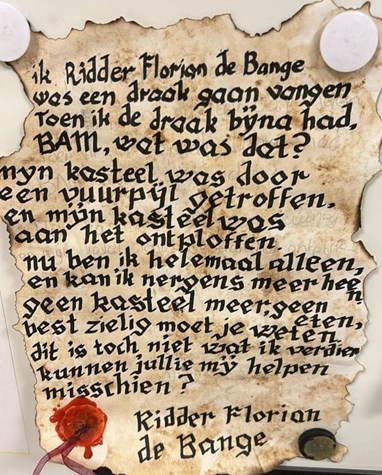 ik Ridder Florian de Bange
was een draak gaan vangen
Toen ik de draak bÿna had,
BAM, wat was dat?
mÿn kasteel was door
een vuurpÿl getroffen,
en mÿn kasteel was
aan het ontploffen.
nu ben ik helemaal alleen,
en kan ik nergens meer heen
geen kasteel meer, geen eten,
best zielig moet je weten
dit is toch niet wat ik verdien
kunnen jullie mÿ helpen
misschien?
Ridder Florian
de Bange